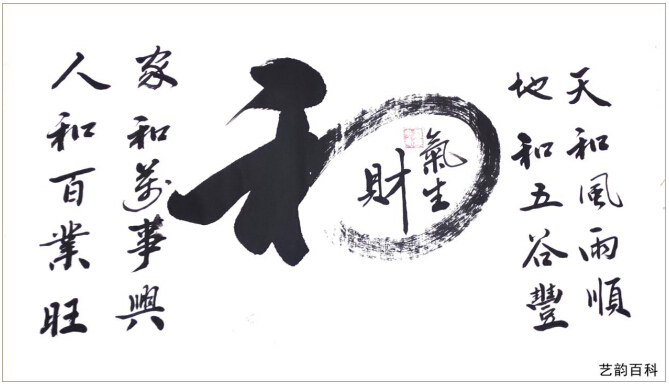 天和風雨順
地和五谷豐
和
氣生
財
家和萬事興
人和百業旺
艺韵百科